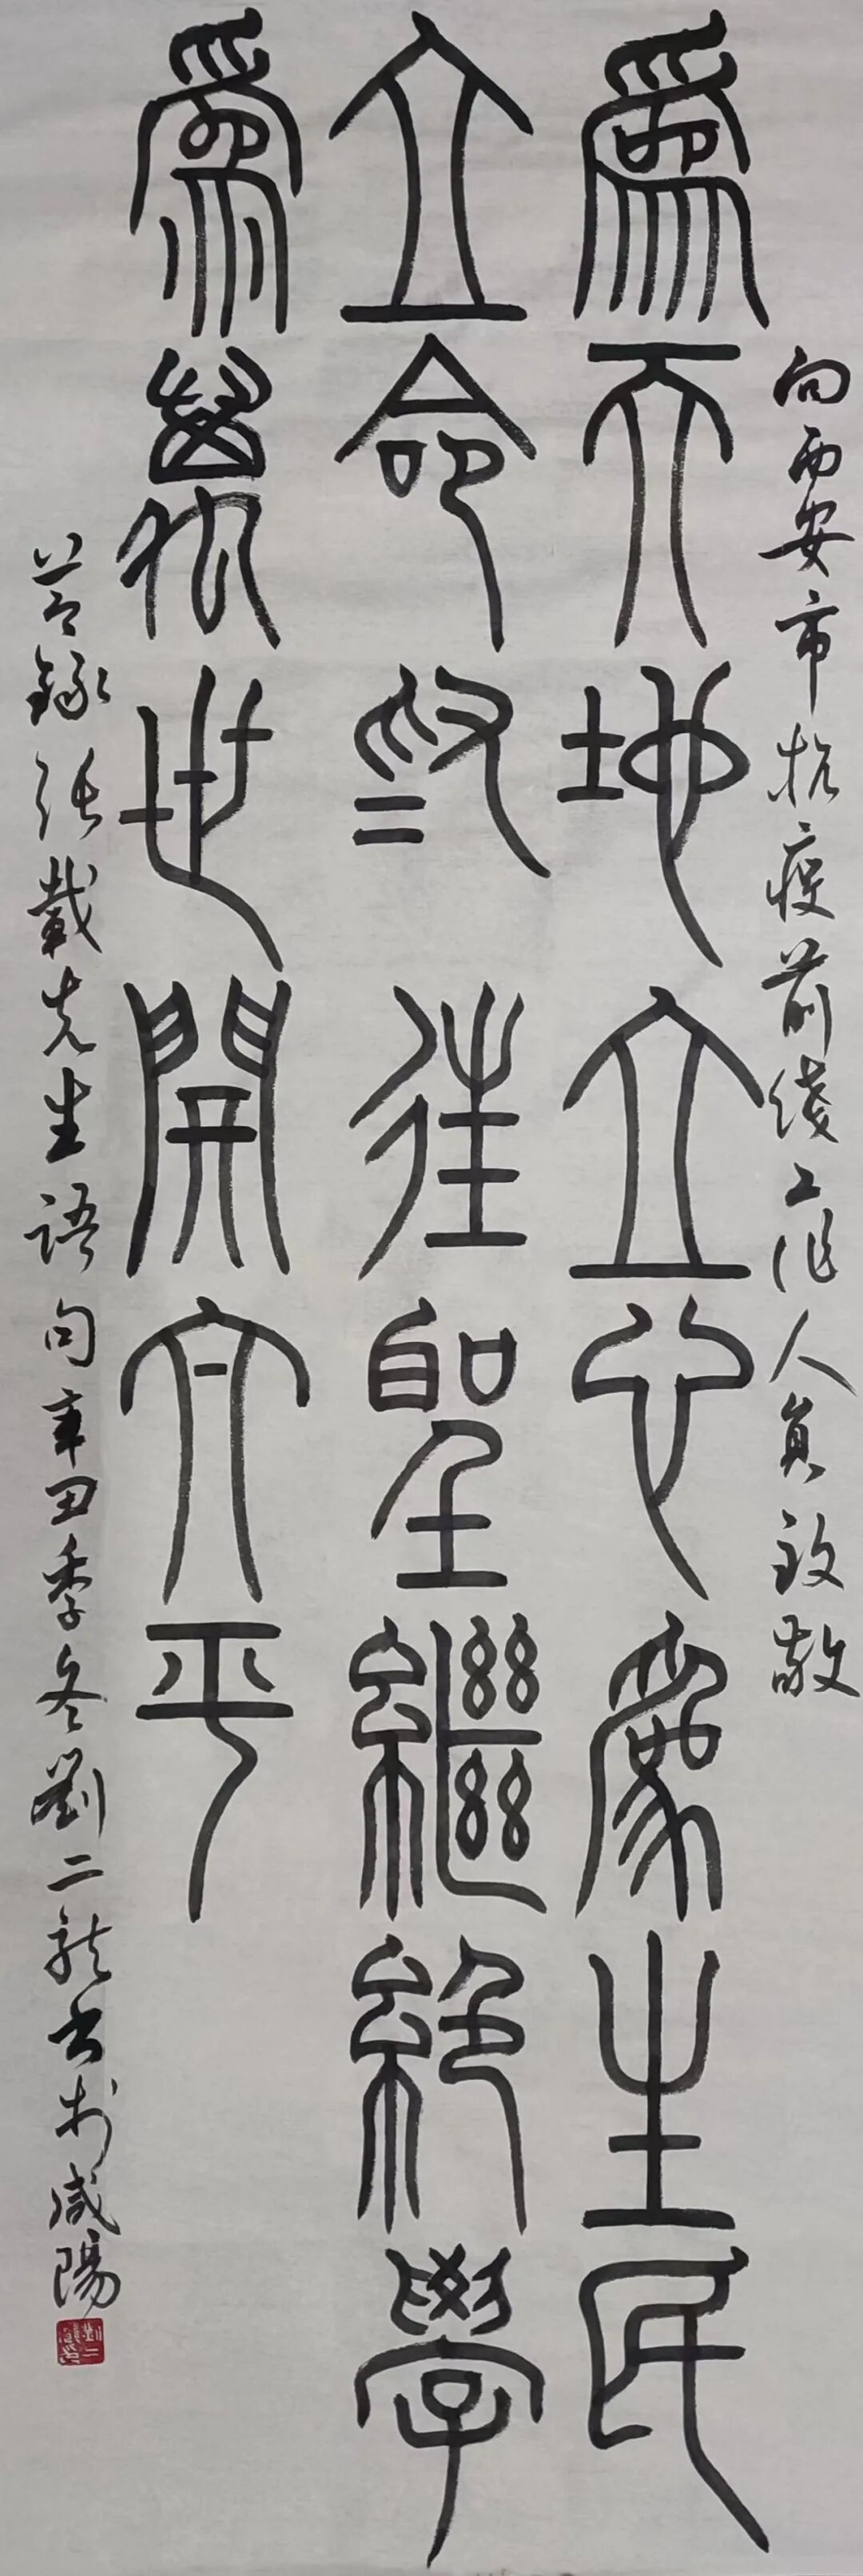 向西安市抗疫前线工作人员致敬
爲天地立心爲生民
立命爲往聖繼絕學
爲萬世開太平
节錄张載先生語句辛丑季冬劉二龙书於咸陽